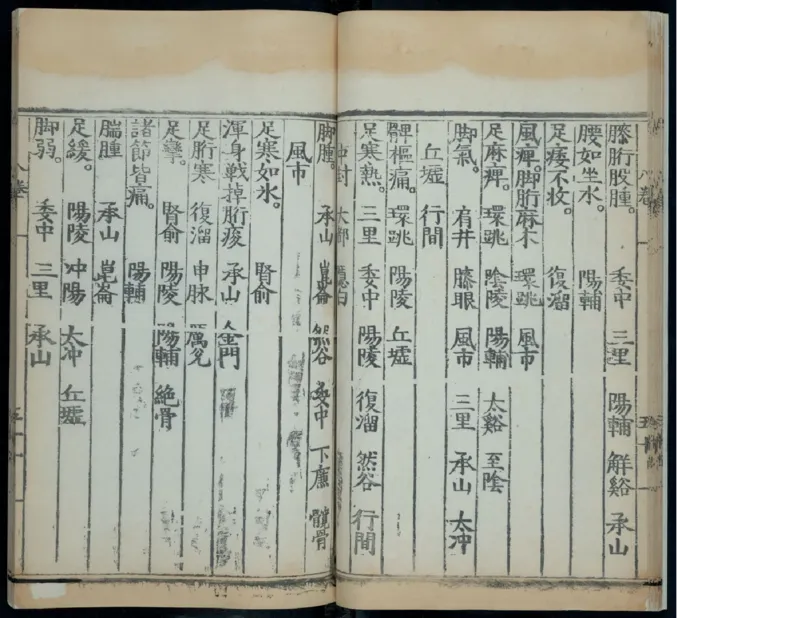 膝胻股腫。 委中 三里 陽輔 解谿 承山
腰如坐水。 陽輔
足痿不收。 復溜
風痺。脚胻麻木 環跳 風市
足麻痺。 環跳 陰陵 陽輔 太谿 至陰
脚氣。 肩井 膝眼 風市 三里 承山 太冲
丘墟 行間
髀樞痛。 環跳 陽陵 丘墟
足寒熱。 三里 委中 陽陵 復溜 然谷 行間
中封 大都 隱白
脚腫。 承山 崑崙 然谷 委中 下廉 髖骨
風市
足寒如氷。 腎俞
渾身戰掉胻痠 承山 金門
足胻寒 復溜 申脉 厲兌
足攣。 腎俞 陽陵 陽輔 絶骨
諸節皆痛。 陽輔
腨腫 承山 崑崙
足緩。 陽陵 冲陽 太冲 丘墟
脚弱。 委中 三里 承山